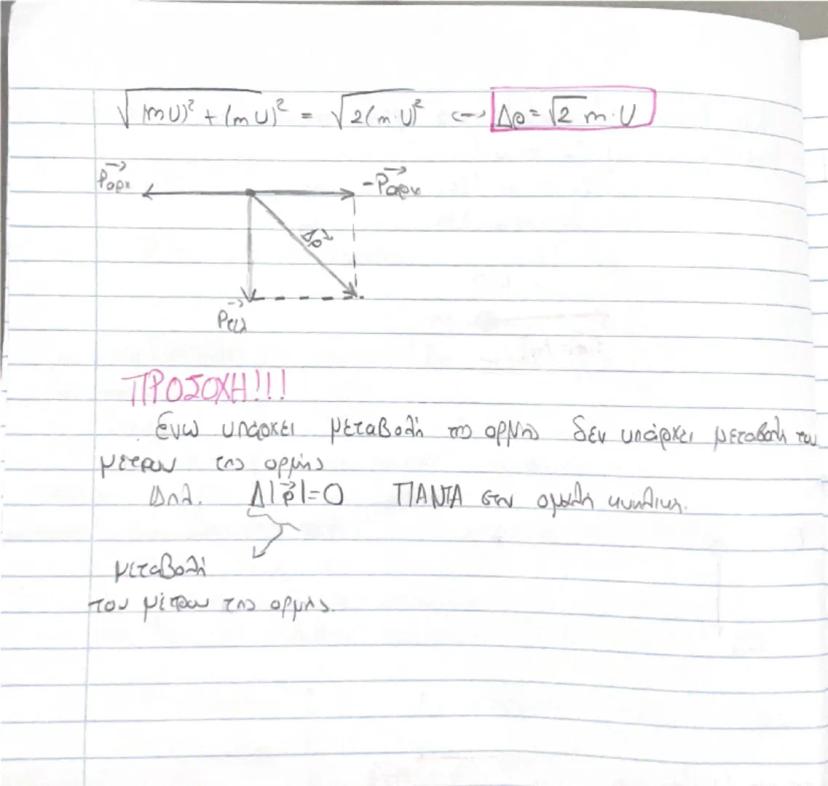 √(mU)² + (mU)² = √2(m·U)² <-> Δρ = √2 m·U
Pαρχ
-Pαρχ
Δρ
Pτελ
ΠΡΟΣΟΧΗ!!!
Ενω υπαρχει μεταβολή της ορμής δεν υπάρχει μεταβολή του
μετρου της ορμής
Δηλ. Δ|ρ|=0 ΠΑΝΤΑ στην ομαλη κυκλικη.
μεταβολή
του μέτρου της ορμής.